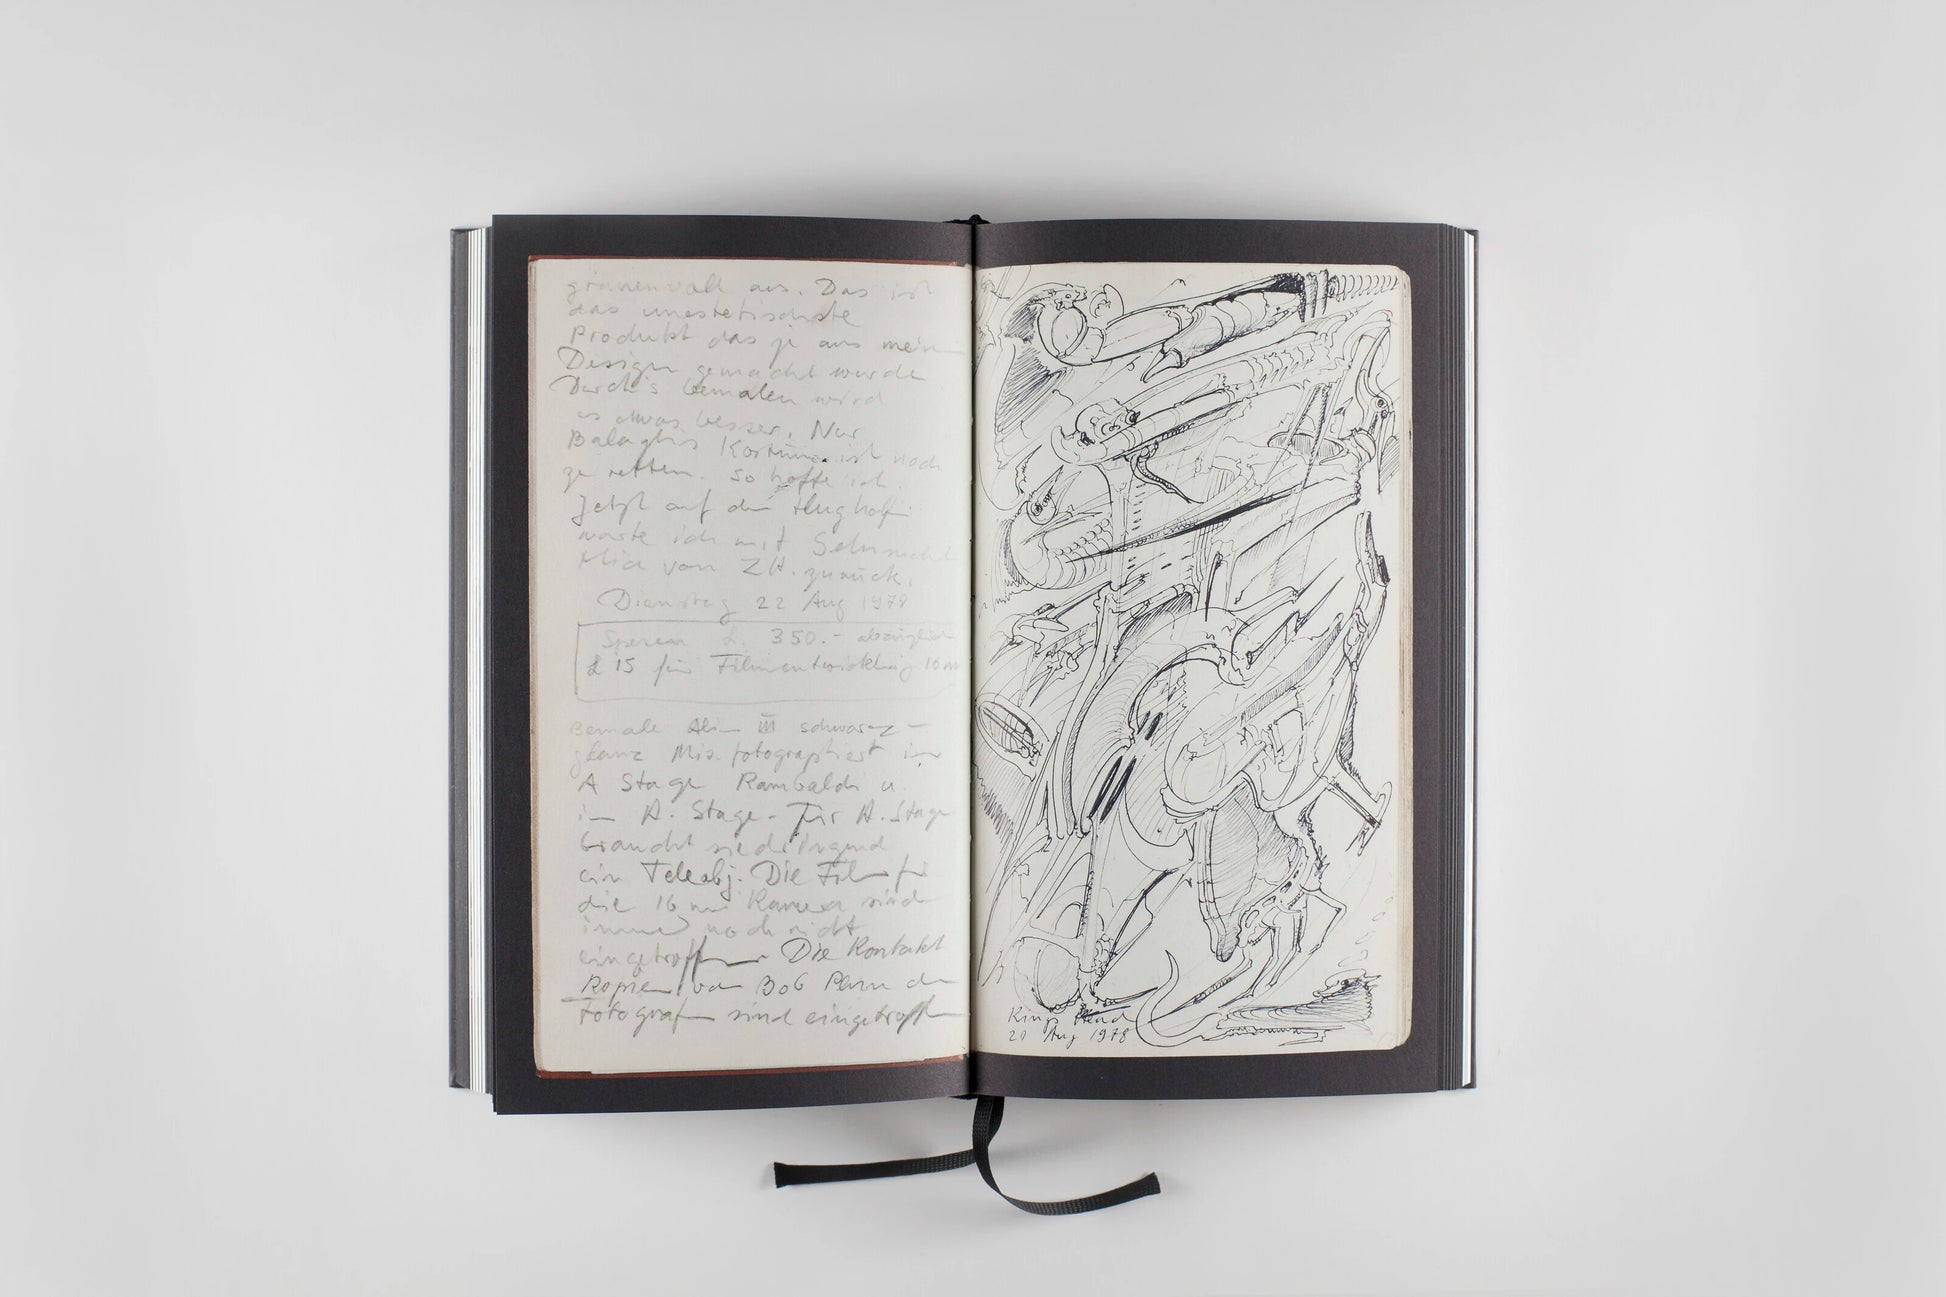 grauenvoll aus. Das ist
das unestetischste
Produkt das je aus mein
Design gemacht wurde
Durch's bemalen wird
es etwas besser. Nur
Balaghis Kostüm ist noch
zu retten. So hoffe ich.
Jetzt auf dem Flughafen
warte ich mit Sehnsucht
Mia von ZH. zurück.
Dienstag 22 Aug 1978
Spesen £. 350.- abzüglich
£ 15 für Filmentwicklung 16 m
Bemale Alien III schwarz-
glanz Mia fotographiert im
A Stage Rambaldi u.
im A. Stage. Für A. Stage
braucht sie dringend
ein Teleobj. Die Filme für
die 16 mm Kamera sind
immer noch nicht
eingetroffen. Die Kontakt
Kopien von Bob Penn dem
Fotografen sind eingetroffen
Kings Head
20 Aug 1978